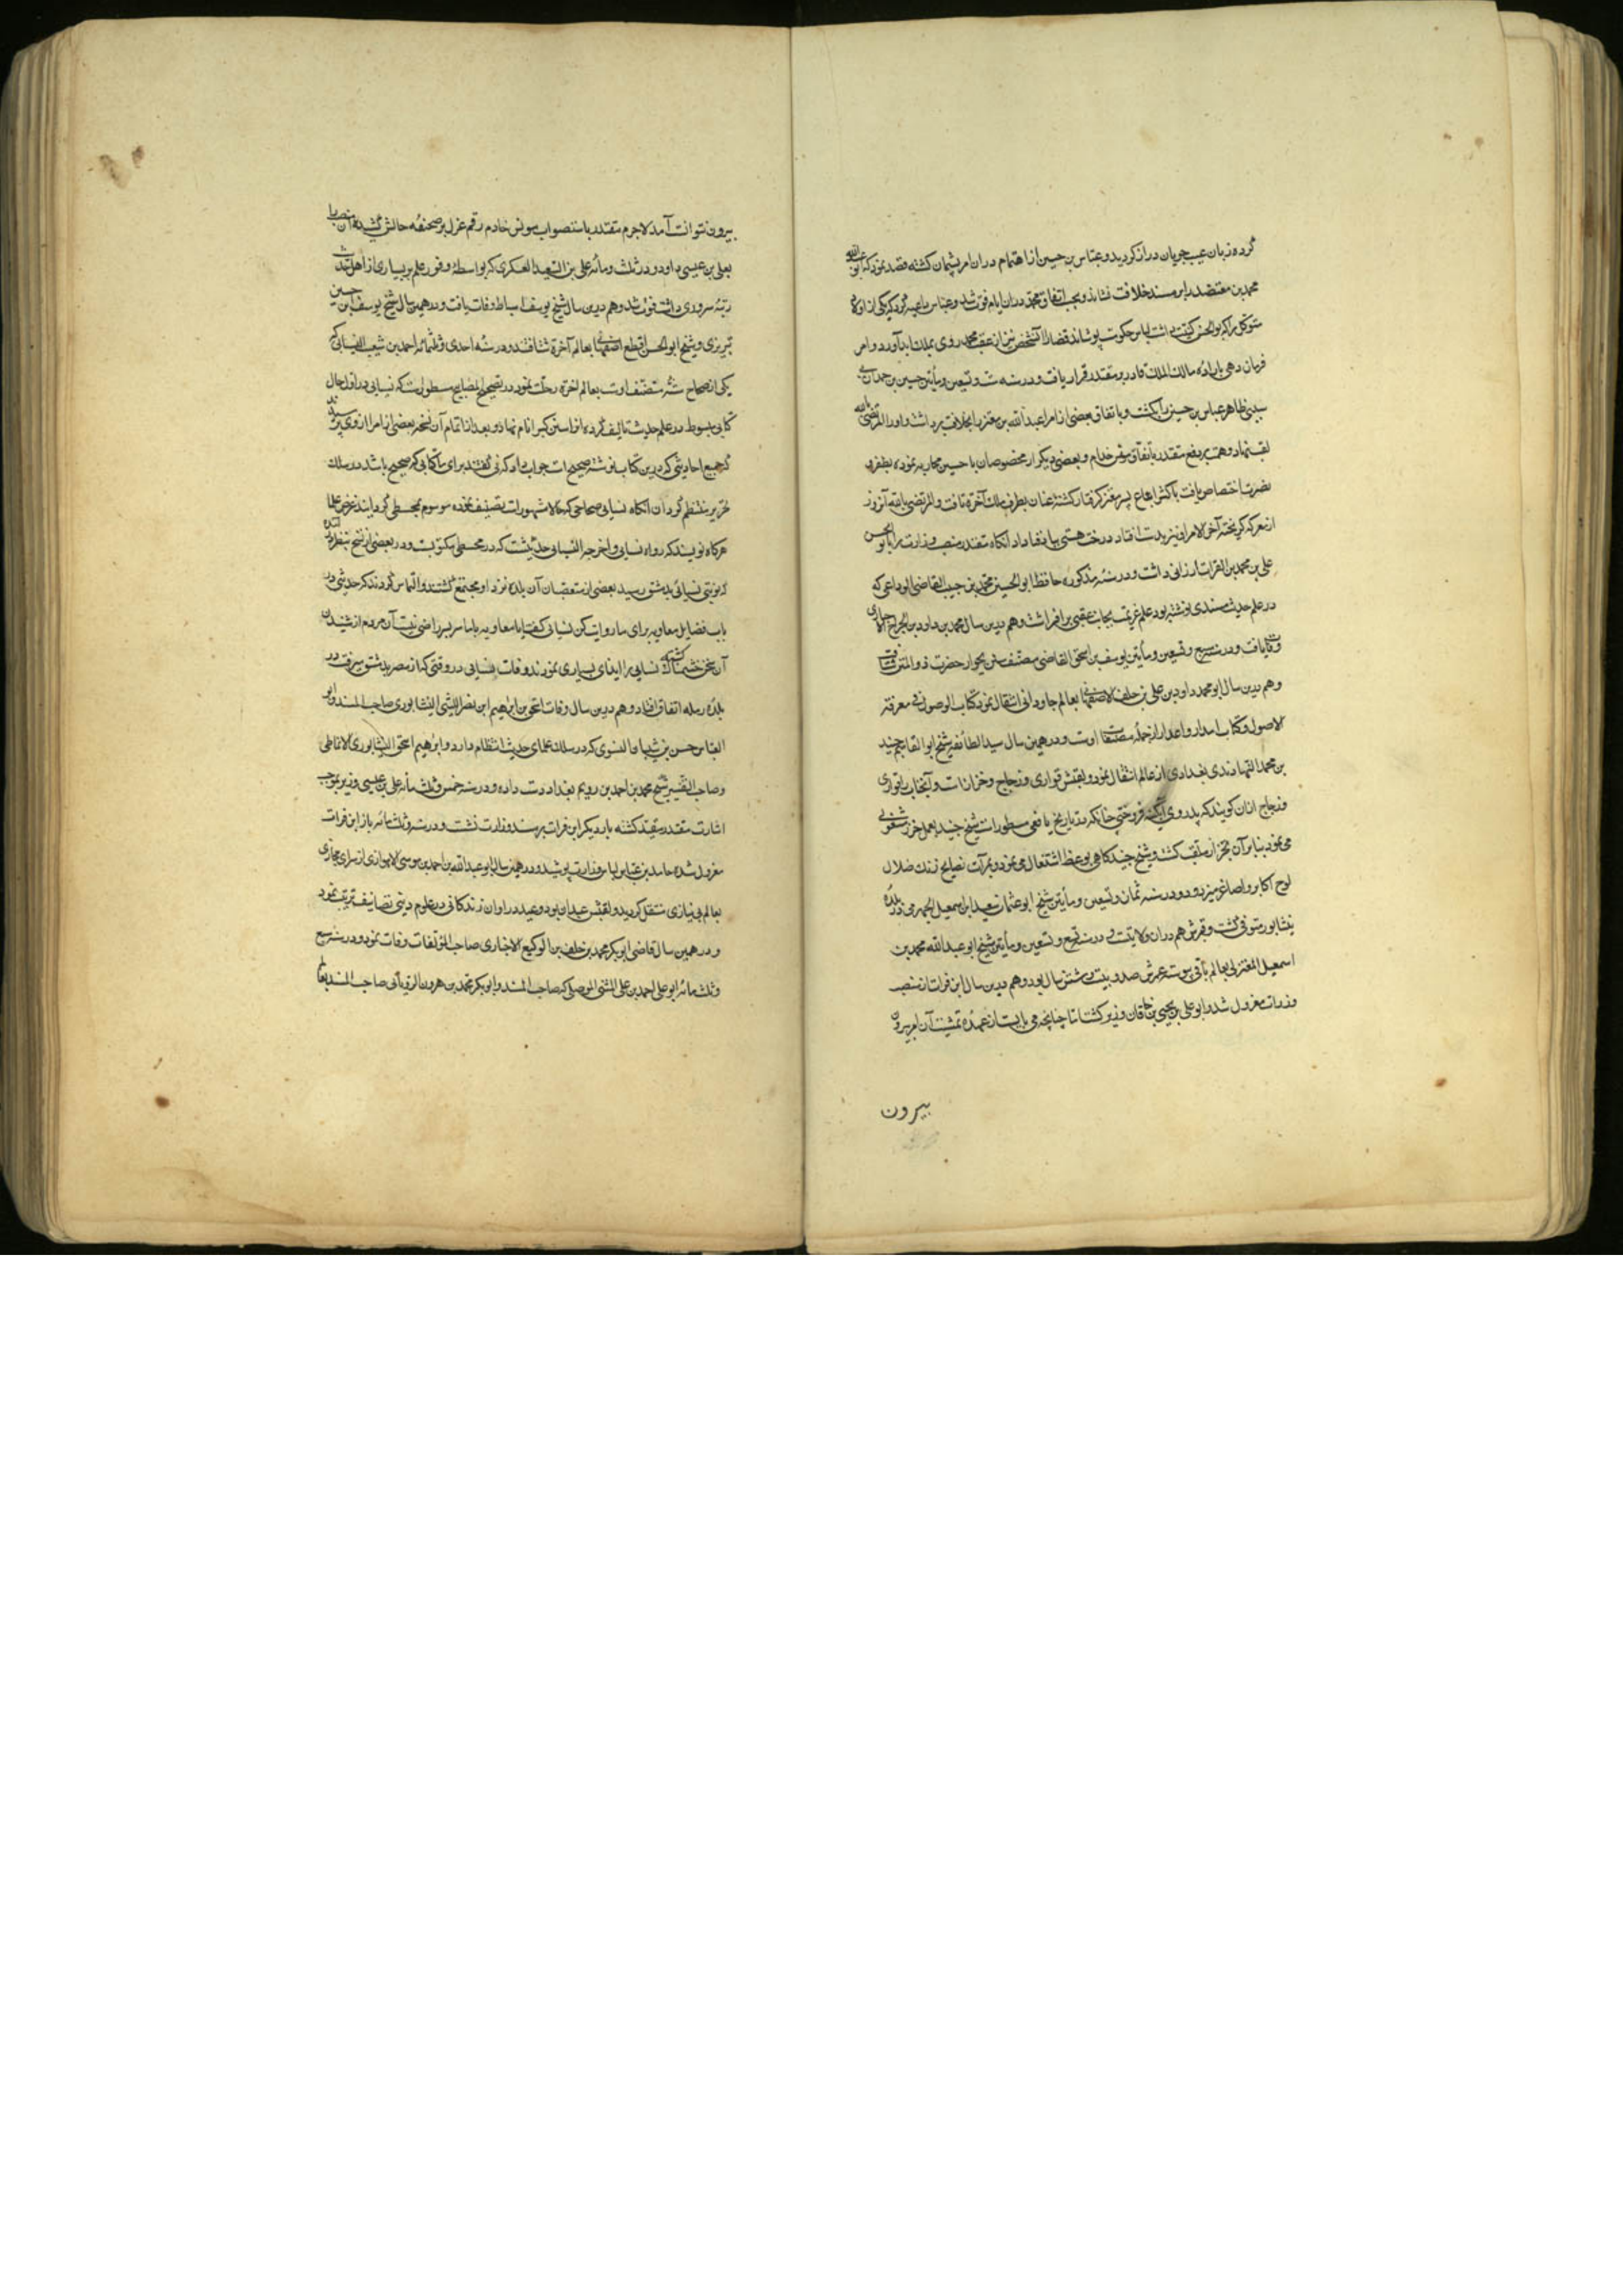 کرده زبان عیب جویان دراز کردید و عباس بن حسین از اهتمام در آن امر پشیمان کشته قصد نمود که ابو عبدالله
محمد بن معتضد را بر مسند خلافت نشاند و بحسب اتفاق محمد در آن ایام فوت شد و عباس داعیه کرد که یکی از اولاد
متوکل را که ابوالحسن کنیت داشت لباس حکومت پوشاند قضا را آن شخص نیز از عقب محمد روی بملک ابد آورد و امر
فرمان دهی باراده مالک الملک قادر بر مقتدر قرار یافت و در سنه ست و تسعین و مأیتین حسین بن حمدان بی
سببی ظاهر عباس بن حسین را بکشت و باتفاق بعضی از امرا عبدالله بن معتز را بخلافت برداشت و او را المرتضی بالله
لقب نهاد و همت بر دفع مقتدر باتفاق مونس خادم و بعضی دیکر از مخصوصان با حسین محاربه نموده بظفر و
نصرت اختصاص یافت با کثر اتباع پسر معتز کرفتار کشته عنان بطرف ملک آخرة تافت و المرتضی بالله آن روز
از معرکه کریخته آخر الامر او نیز بدست افتاد درخت هستی بباد فنا داد انکاه مقتدر منصب وزارت را بابو الحسن
علی بن محمد بن الفرات ارزانی داشت و در سنه مذکوره حافظ ابو الحسین محمد بن حبیب القاضی الوداعی که
در علم حدیث مسندی نوشته بود علم عزیمت بجانب عقبی برافراشت و هم درین سال محمد بن داود بن الجراح الاخباری
وفات یافت و در سنه سبع و تسعین و مأیتین یوسف بن اسحق القاضی مصنف سنن بجوار حضرت ذو المنن شتافت
و هم درین سال ابو محمد داود بن علی بن خلف الاصفهانی بعالم جاودانی انتقال نمود کتاب الوصول فی معرفة
الاصول و کتاب اعذار از جمله مصنفات اوست و در همین سال سید الطائفه شیخ ابو القاسم جنید
بن محمد النهاوندی بغدادی از عالم انتقال نمود و لقبش قواریری و زجاج و خزاز است و آنجناب را قواریری
و زجاج از آن کویند که پدر وی آبکینه فروختی چنانکه در تاریخ یافعی مسطور است شیخ جنید بعمل خز مشعوفی
می نمود بنا بر آن بخزاز ملقب کشت و شیخ جنید کاهی بوعظ اشتغال می نمود و بمرآت نصایح زنک ضلال
لوح اکابر و اصاغر میزدود و در سنه ثمان و تسعین و مأیتین شیخ ابو عثمان سعید ابن اسمعیل الحیری در بلده
نیشابور متوفی کشت و قبرش هم در آن ولایتست و در سنه تسع و تسعین و مأیتین شیخ ابو عبدالله محمد بن
اسمعیل المغربی بعالم باقی پیوست عمرش صد و بیست و شش سال بود و هم درین سال ابن فرات از منصب
وزرات معزول شد و ابو علی بن یحیی بن خاقان وزیر کشت اما چنانچه می بایست از عهده تمشیت آن امر بیرون
بیرون
بیرون نتوانست آمد لاجرم مقتدر باستصواب مونس خادم رقم عزل بر صحیفه حالش کشیده آن منصب را
بعلی بن عیسی داد و در ثلث و مأته علی بن السعید العسکری که بواسطه وفور علم بر بسیاری از اهل حدیث
رتبه سروری داشت فوت شد و هم درین سال شیخ یوسف اسباط وفات یافت و در همین سال شیخ یوسف ابن حسین
تبریزی و شیخ ابو الحسن اقطع اصفهانی بعالم آخرة شتافتند و در سنه احدی و ثلثمائه احمد بن شعیب النسائی که
یکی از صحاح سته مصنف اوست بعالم آخرة رحلت نمود در تصحیح المصابیح مسطور است که نسایی در اوایل حال
کتابی مبسوط در علم حدیث تالیف کرده انرا سنن کبیر نام نهاد و بعد از اتمام آن نسخه بعضی از امرا از وی پرسیدند
که جمیع احادیثی که درین کتاب نوشته صحیح است جواب داد که نی کفتند برای ما کتابی که صحیح باشد در سلک
تحریر منتظم کردان انکاه نسایی صحاحی که حالا مشهور است تصنیف نموده موسوم بمجتبی کردانید غرض علما
هرکاه نویسند که رواه نسایی و اخرجه النسایی حدیثیست که در مجتبی مکتوبست و در بعضی از نسخ بنظر در آمده
که نوبتی نسایی بدمشق رسید بعضی از متعصبان آن بلده نزد او مجتمع کشتند و التماس کردند که حدیثی در
باب فضایل معاویه برای ما روایت کن نسایی کفت ایا معاویه باما سر بسر راضی نیست آن مردم از شنیدن
آن سخن خشمناک کشته نسایی را ایذای بسیاری نمودند وفات نسایی در وقتی که از مصر بدمشق میرفت در
بلده رمله اتفاق افتاد و هم درین سال وفات اسحق بن ابراهیم ابن نصر البشتی النیشابوری صاحب المسند و ابو
العباس حسن بن شیبان النسوی که در سلک علمای حدیث انتظام دارد و ابراهیم اسحق النیشابوری الانماطی
و صاحب التفسیر شیخ محمد بن احمد بن رویم بغداد دست داده و در سنه خمس و ثلث مائه علی بن عیسی وزیر بموجب
اشارت مقتدر مقید کشته بار دیکر ابن فرات بر مسند وزارت نشست و در سنه و ثلث مائه باز ابن فرات
معزول شده حامد بن عباس لباس وزارت پوشید و در همین سال ابو عبدالله بن احمد بن موسی الاهوازی از سرای مجازی
بعالم بی نیازی منتقل کردید و لقبش عبدان بود و عبدان در اوان زندکانی در علوم دینی تصانیف ترتیب نمود
و در همین سال قاضی ابوبکر محمد بن خلف بن الوکیع الاخباری صاحب المؤلفات وفات نمود و در سنه سبع
و ثلث مائه ابو علی احمد بن علی المثنی الموصلی که صاحب المسند و ابوبکر محمد بن هرون الرویانی صاحب المسند بعالم